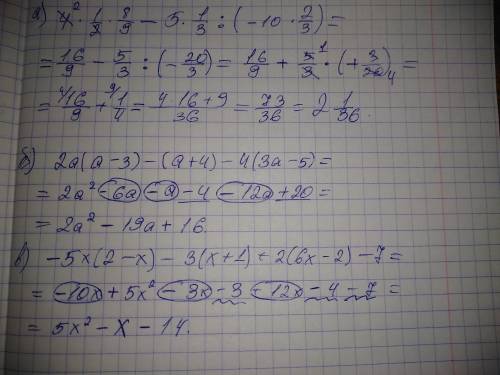 а) 4² · 1/2 · 8/9 − 5 · 1/3 : (−10 · 2/3) =
= 16/9 − 5/3 : (−20/3) = 16/9 + 5¹/3 · (+3/20₄) =
= ⁴16/9 + ⁹1/4 = 4·16+9/36 = 73/36 = 2 1/36.
б) 2a(a−3) − (a+4) − 4(3a−5) =
= 2a² −6a −a −4 −12a +20 =
= 2a² − 19a + 16.
в) −5x(2−x) − 3(x+1) + 2(6x−2) − 7 =
= −10x + 5x² − 3x − 3 + 12x − 4 − 7 =
= 5x² − x − 14.